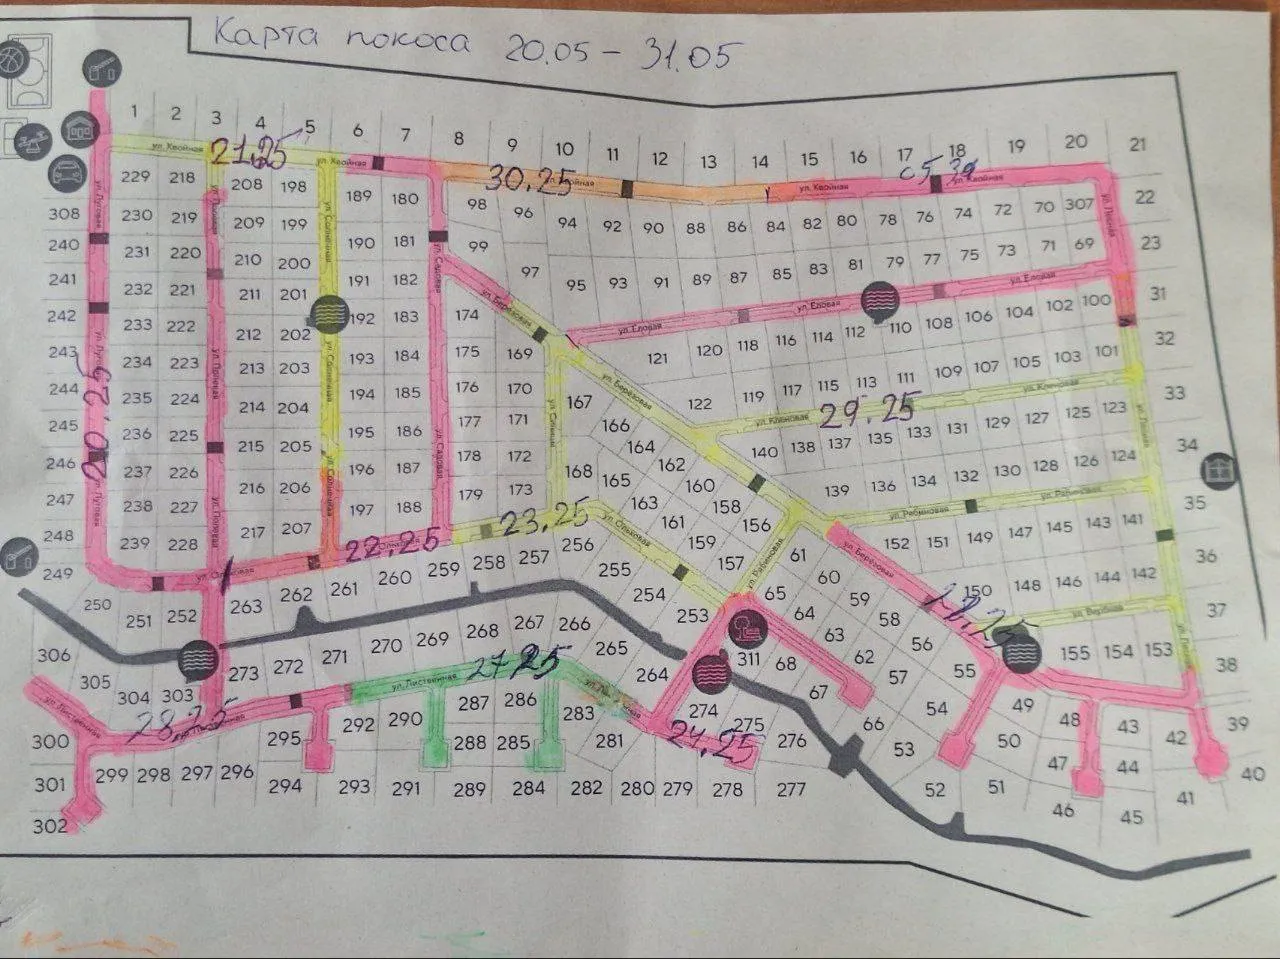 Карта покоса 20.05 – 31.05
1 2 3 4 5 6 7 8 9 10 11 12 13 14 15 16 17 18 19 20 21
ул. Хвойная 21.25 ул. Хвойная 30.25 ул. Хвойная ул. Хвойная
229 218 208 198 189 180 98 96 94 92 90 88 86 84 82 80 78 76 74 72 70 307 22
308 230 219 209 199 190 181 99 97 95 93 91 89 87 85 83 81 79 77 75 73 71 69 23
240 231 220 210 200 191 182
241 232 221 211 201 192 183 174
242 233 222 212 202 193 184 175 169
243 234 223 213 203 194 185 176 170
244 235 224 214 204 195 186 177 171
245 236 225 215 205 196 187 178 172
246 237 226 216 206 197 188 179 173
247 238 227 217 207
248 239 228
249
ул. Луговая
ул. Луговая
ул. Луговая
20.25
ул. Полевая
ул. Полевая
ул. Полевая
ул. Солнечная
ул. Солнечная
ул. Солнечная
ул. Садовая
ул. Садовая
ул. Берёзовая
ул. Еловая
ул. Еловая
ул. Еловая
ул. Лесная
31
121 120 118 116 114 112 110 108 106 104 102 100
32
122 119 117 115 113 111 109 107 105 103 101
33
ул. Берёзовая
ул. Кленовая 29.25 ул. Кленовая
ул. Лесная
167 166 164 162 160 158 156
168 165 163 161 159 157
140 138 137 135 133 131 129 127 125 123
34
139 136 134 132 130 128 126 124
35
ул. Рябиновая
ул. Рябиновая
152 151 149 147 145 143 141
36
150 148 146 144 142
37
ул. Берёзовая
ул. Вербная
155 154 153
38
ул. Лесная
22.25 23.25
ул. Ольховая
ул. Рябиновая
250 251 252 263 262 261 260 259 258 257 256 255 254 253
61 60 59 58 56 55
65 64 63 62 57 54
306 305 304 303 273 272 271 270 269 268 267 266 265 264
311 68 67 66 53 52
49 48 43 42 39
50 47 44 41 40
51 46 45
ул. Лиственная
28.25
ул. Лиственная 27.25
24.25
300 295 292 290 287 286 283 274 275 276
288 285 281
301 299 298 297 296 294 293 291 289 284 282 280 279 278 277
302